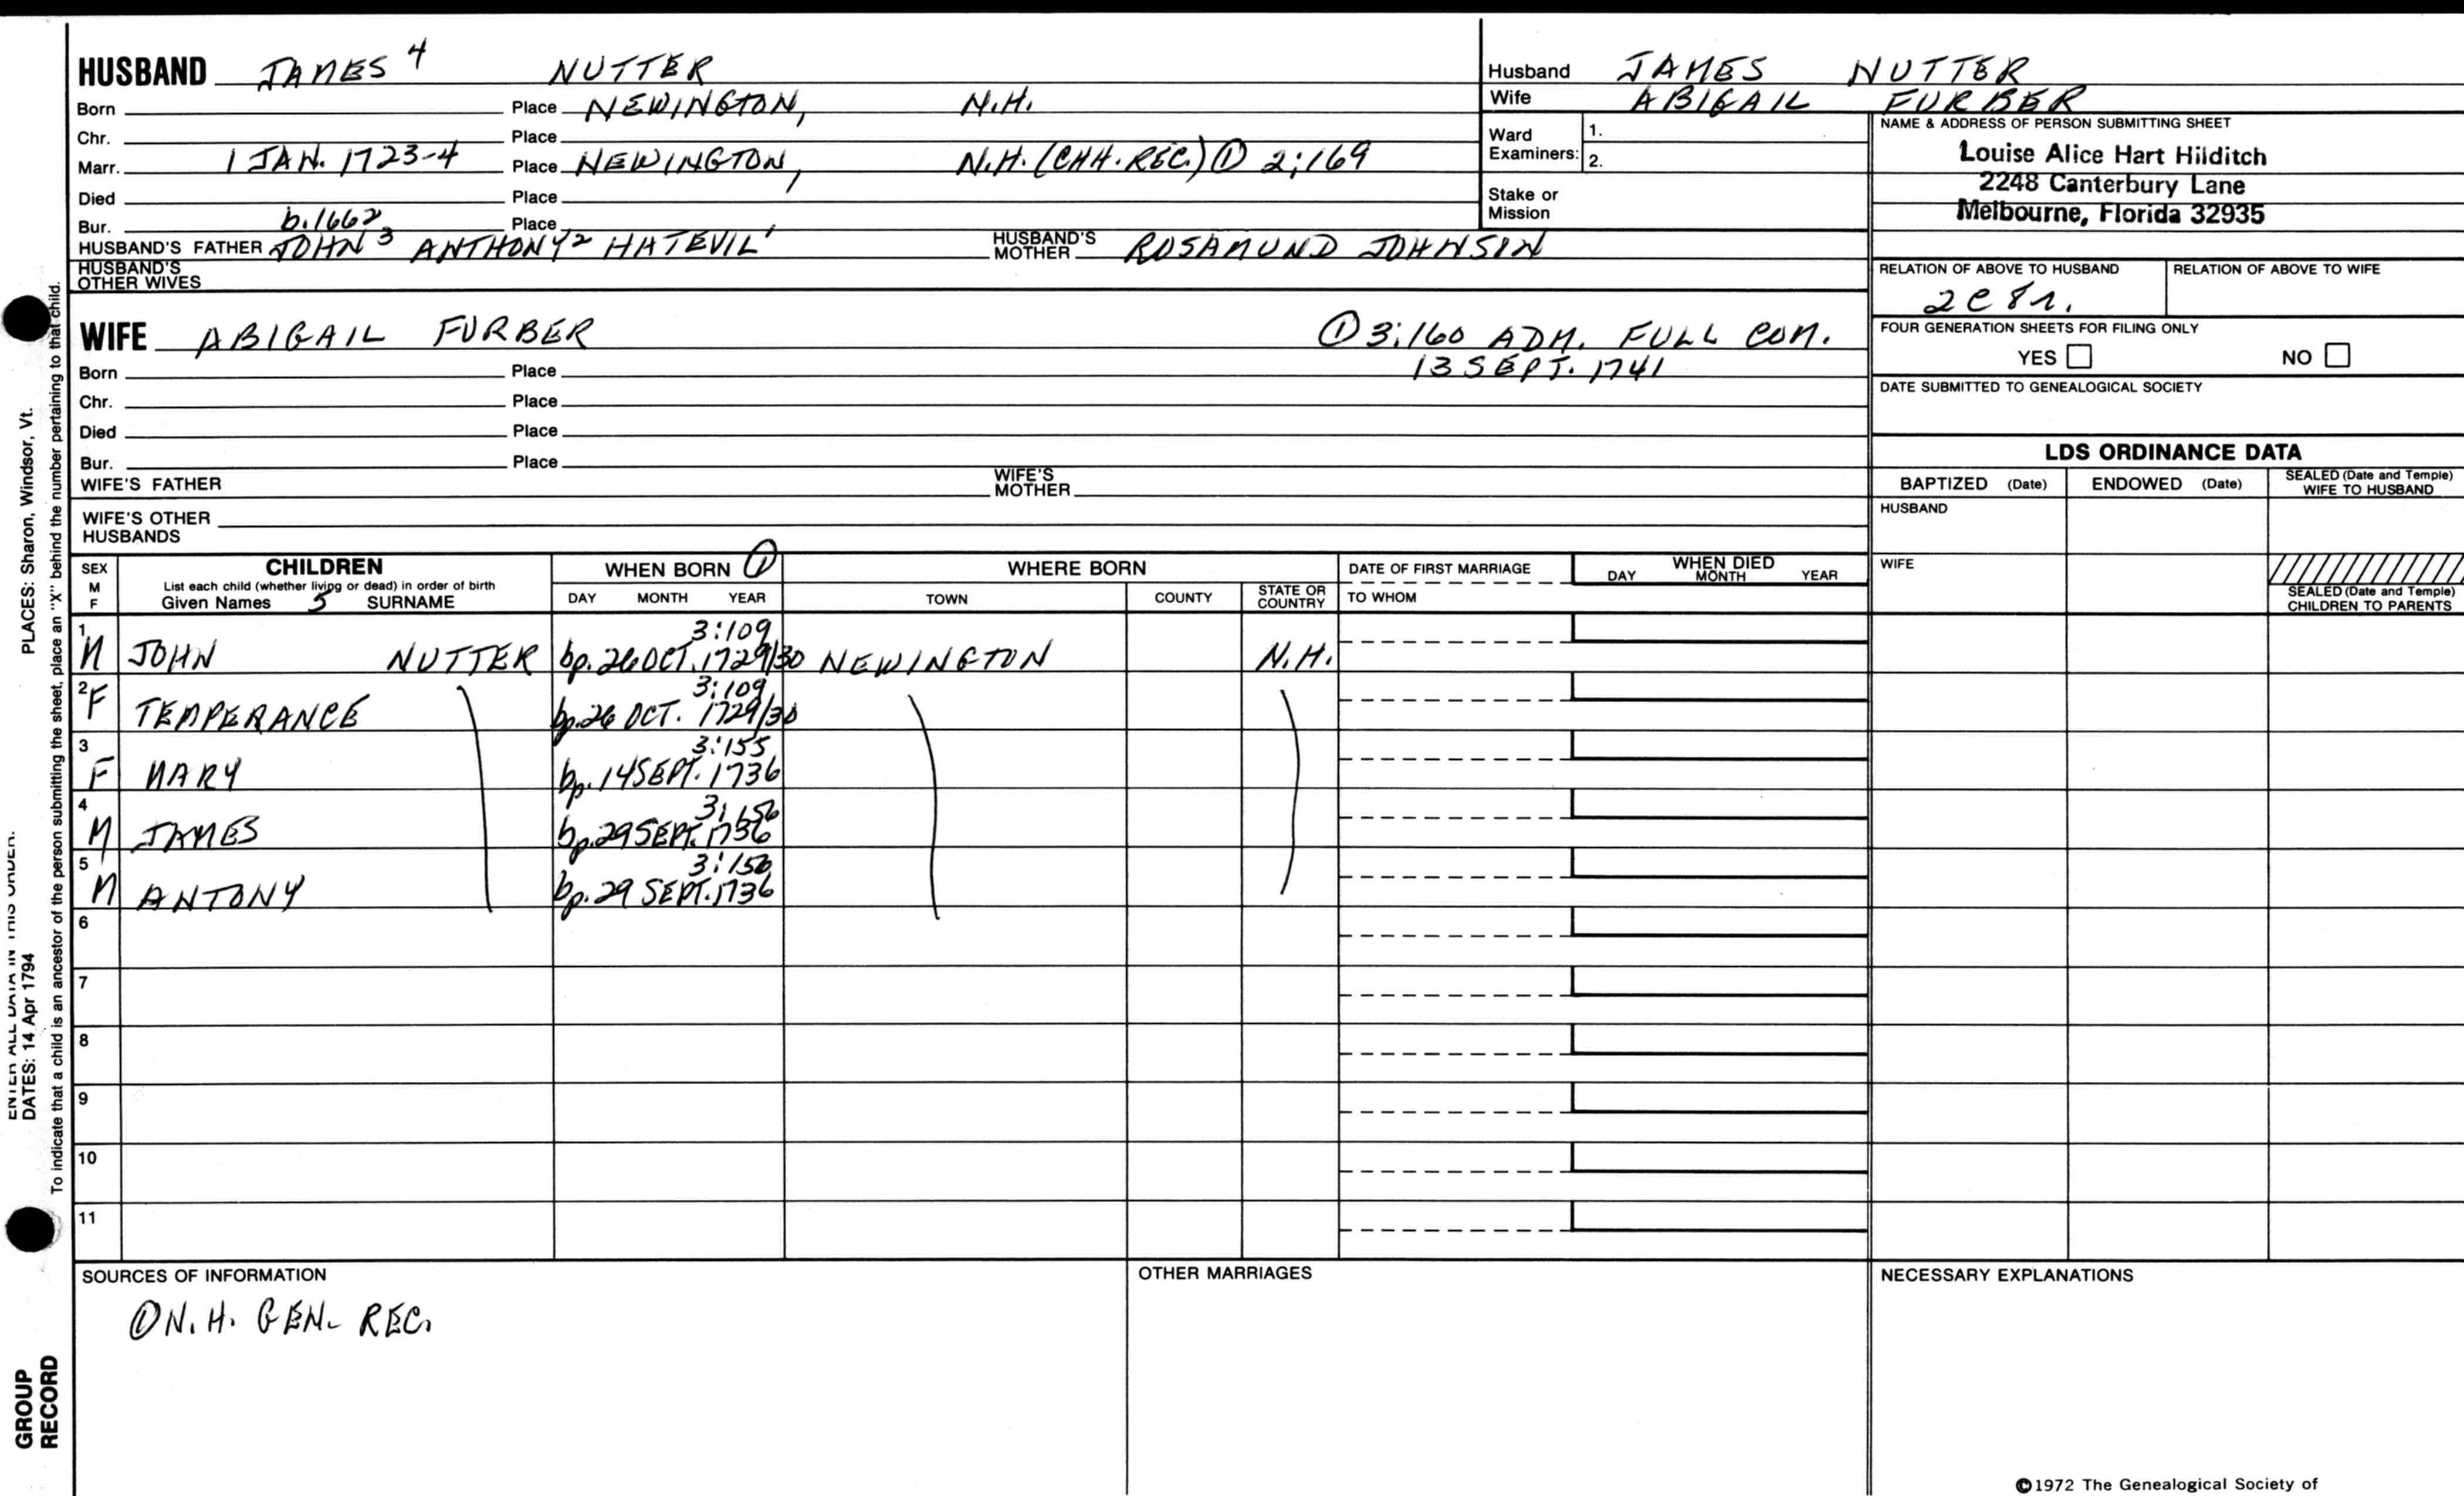 HUSBAND JAMES 4 NUTTER
Born Place NEWINGTON, N.H.
Chr. Place
Marr. 1 JAN. 1723-4 Place NEWINGTON, N.H. (CHH. REC.) ① 2:169
Died Place
Bur. b.1662 Place
HUSBAND'S FATHER JOHN 3 ANTHONY 2 HATEVIL 1 HUSBAND'S MOTHER ROSAMUND JOHNSIN
HUSBAND'S OTHER WIVES
Husband JAMES NUTTER
Wife ABIGAIL FURBER
Ward Examiners: 1.
2.
Stake or Mission
NAME & ADDRESS OF PERSON SUBMITTING SHEET
Louise Alice Hart Hilditch
2248 Canterbury Lane
Melbourne, Florida 32935
RELATION OF ABOVE TO HUSBAND RELATION OF ABOVE TO WIFE
2C 8r.
FOUR GENERATION SHEETS FOR FILING ONLY
YES NO
DATE SUBMITTED TO GENEALOGICAL SOCIETY
WIFE ABIGAIL FURBER ① 3:160 ADM. FULL COM.
13 SEPT. 1741
Born Place
Chr. Place
Died Place
Bur. Place
WIFE'S FATHER WIFE'S MOTHER
WIFE'S OTHER HUSBANDS
LDS ORDINANCE DATA
BAPTIZED (Date) ENDOWED (Date) SEALED (Date and Temple) WIFE TO HUSBAND
HUSBAND
WIFE
SEALED (Date and Temple) CHILDREN TO PARENTS
SEX M F CHILDREN WHEN BORN ① WHERE BORN DATE OF FIRST MARRIAGE WHEN DIED
List each child (whether living or dead) in order of birth
Given Names 5 SURNAME DAY MONTH YEAR TOWN COUNTY STATE OR COUNTRY TO WHOM DAY MONTH YEAR
1 3:109
M JOHN NUTTER bp. 26 OCT. 1729/30 NEWINGTON N.H.
2 3:109
F TEMPERANCE bp. 26 OCT. 1729/30
3 3:155
F MARY bp. 14 SEPT. 1736
4 3:156
M JAMES bp. 29 SEPT. 1736
5 3:156
M ANTONY bp. 29 SEPT. 1736
6
7
8
9
10
11
SOURCES OF INFORMATION OTHER MARRIAGES NECESSARY EXPLANATIONS
① N.H. GEN. REC.
©1972 The Genealogical Society of
To indicate that a child is an ancestor of the person submitting the sheet, place an "X" behind the number pertaining to that child.
ENTER ALL DATA IN THIS ORDER.
DATES: 14 Apr 1794 PLACES: Sharon, Windsor, Vt.
GROUP
RECORD